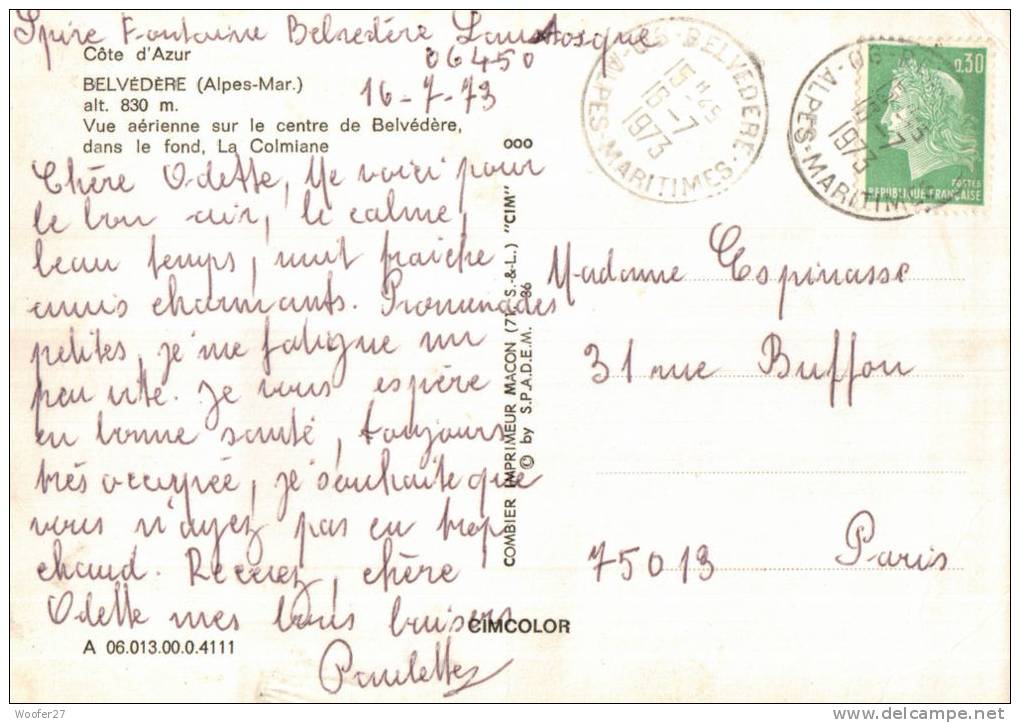 Spire Fontaine Belvédère Lantosque
06450
16-7-73
Côte d'Azur
BELVÉDÈRE (Alpes-Mar.)
alt. 830 m.
Vue aérienne sur le centre de Belvédère,
dans le fond, La Colmiane
Chère Odette, Me voici pour
le bon air, le calme,
beau temps, nuit fraîche
amis charmants. Promenades
petites, je me fatigue un
peu vite. Je vous espère
en bonne santé, toujours
très occupée, je souhaite que
vous n'ayez pas eu trop
chaud. Recevez, chère
Odette mes bons baisers
Paulette
A 06.013.00.0.4111
CIMCOLOR
ooo
COMBIER IMPRIMEUR MACON (71, S.-&-L.) "CIM"
© by S.P.A.D.E.M. 86
06-BELVEDERE
15H45
16-7
1973
ALPES-MARITIMES
1973
ALPES-MARITIMES
0,30
POSTES
REPUBLIQUE FRANÇAISE
Madame Espinasse
31 rue Buffon
75013 Paris
Woofer27
http://www.delcampe.net